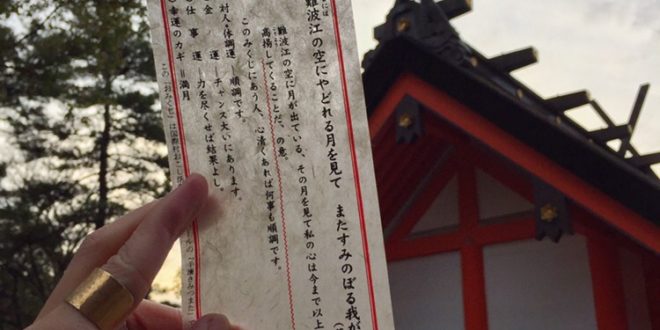 なには
難波江の空にやどれる月を見て
またすみのぼる我が
難波江の空に月が出ている、その月を見て私の心は今まで以上
高揚してくることだ、の意。
このみくじにあう人、心清くあれば何事も順調です。
対人・体調運 ― 順調です。
金運 ― チャンス大いにあります。
仕事運 ― 力を尽くせば結果よし。
幸運のカギ = 満月
この「おみくじ」は国際村おこし